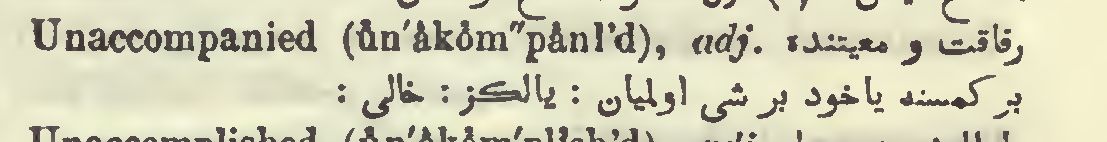 Unaccompanied (ŭn′ȧkŏm″pȧnĭ'd), adj. رفاقت و معیتنده
بر کمسنه یاخود بر شی اولمیان : یالکز : خالی :